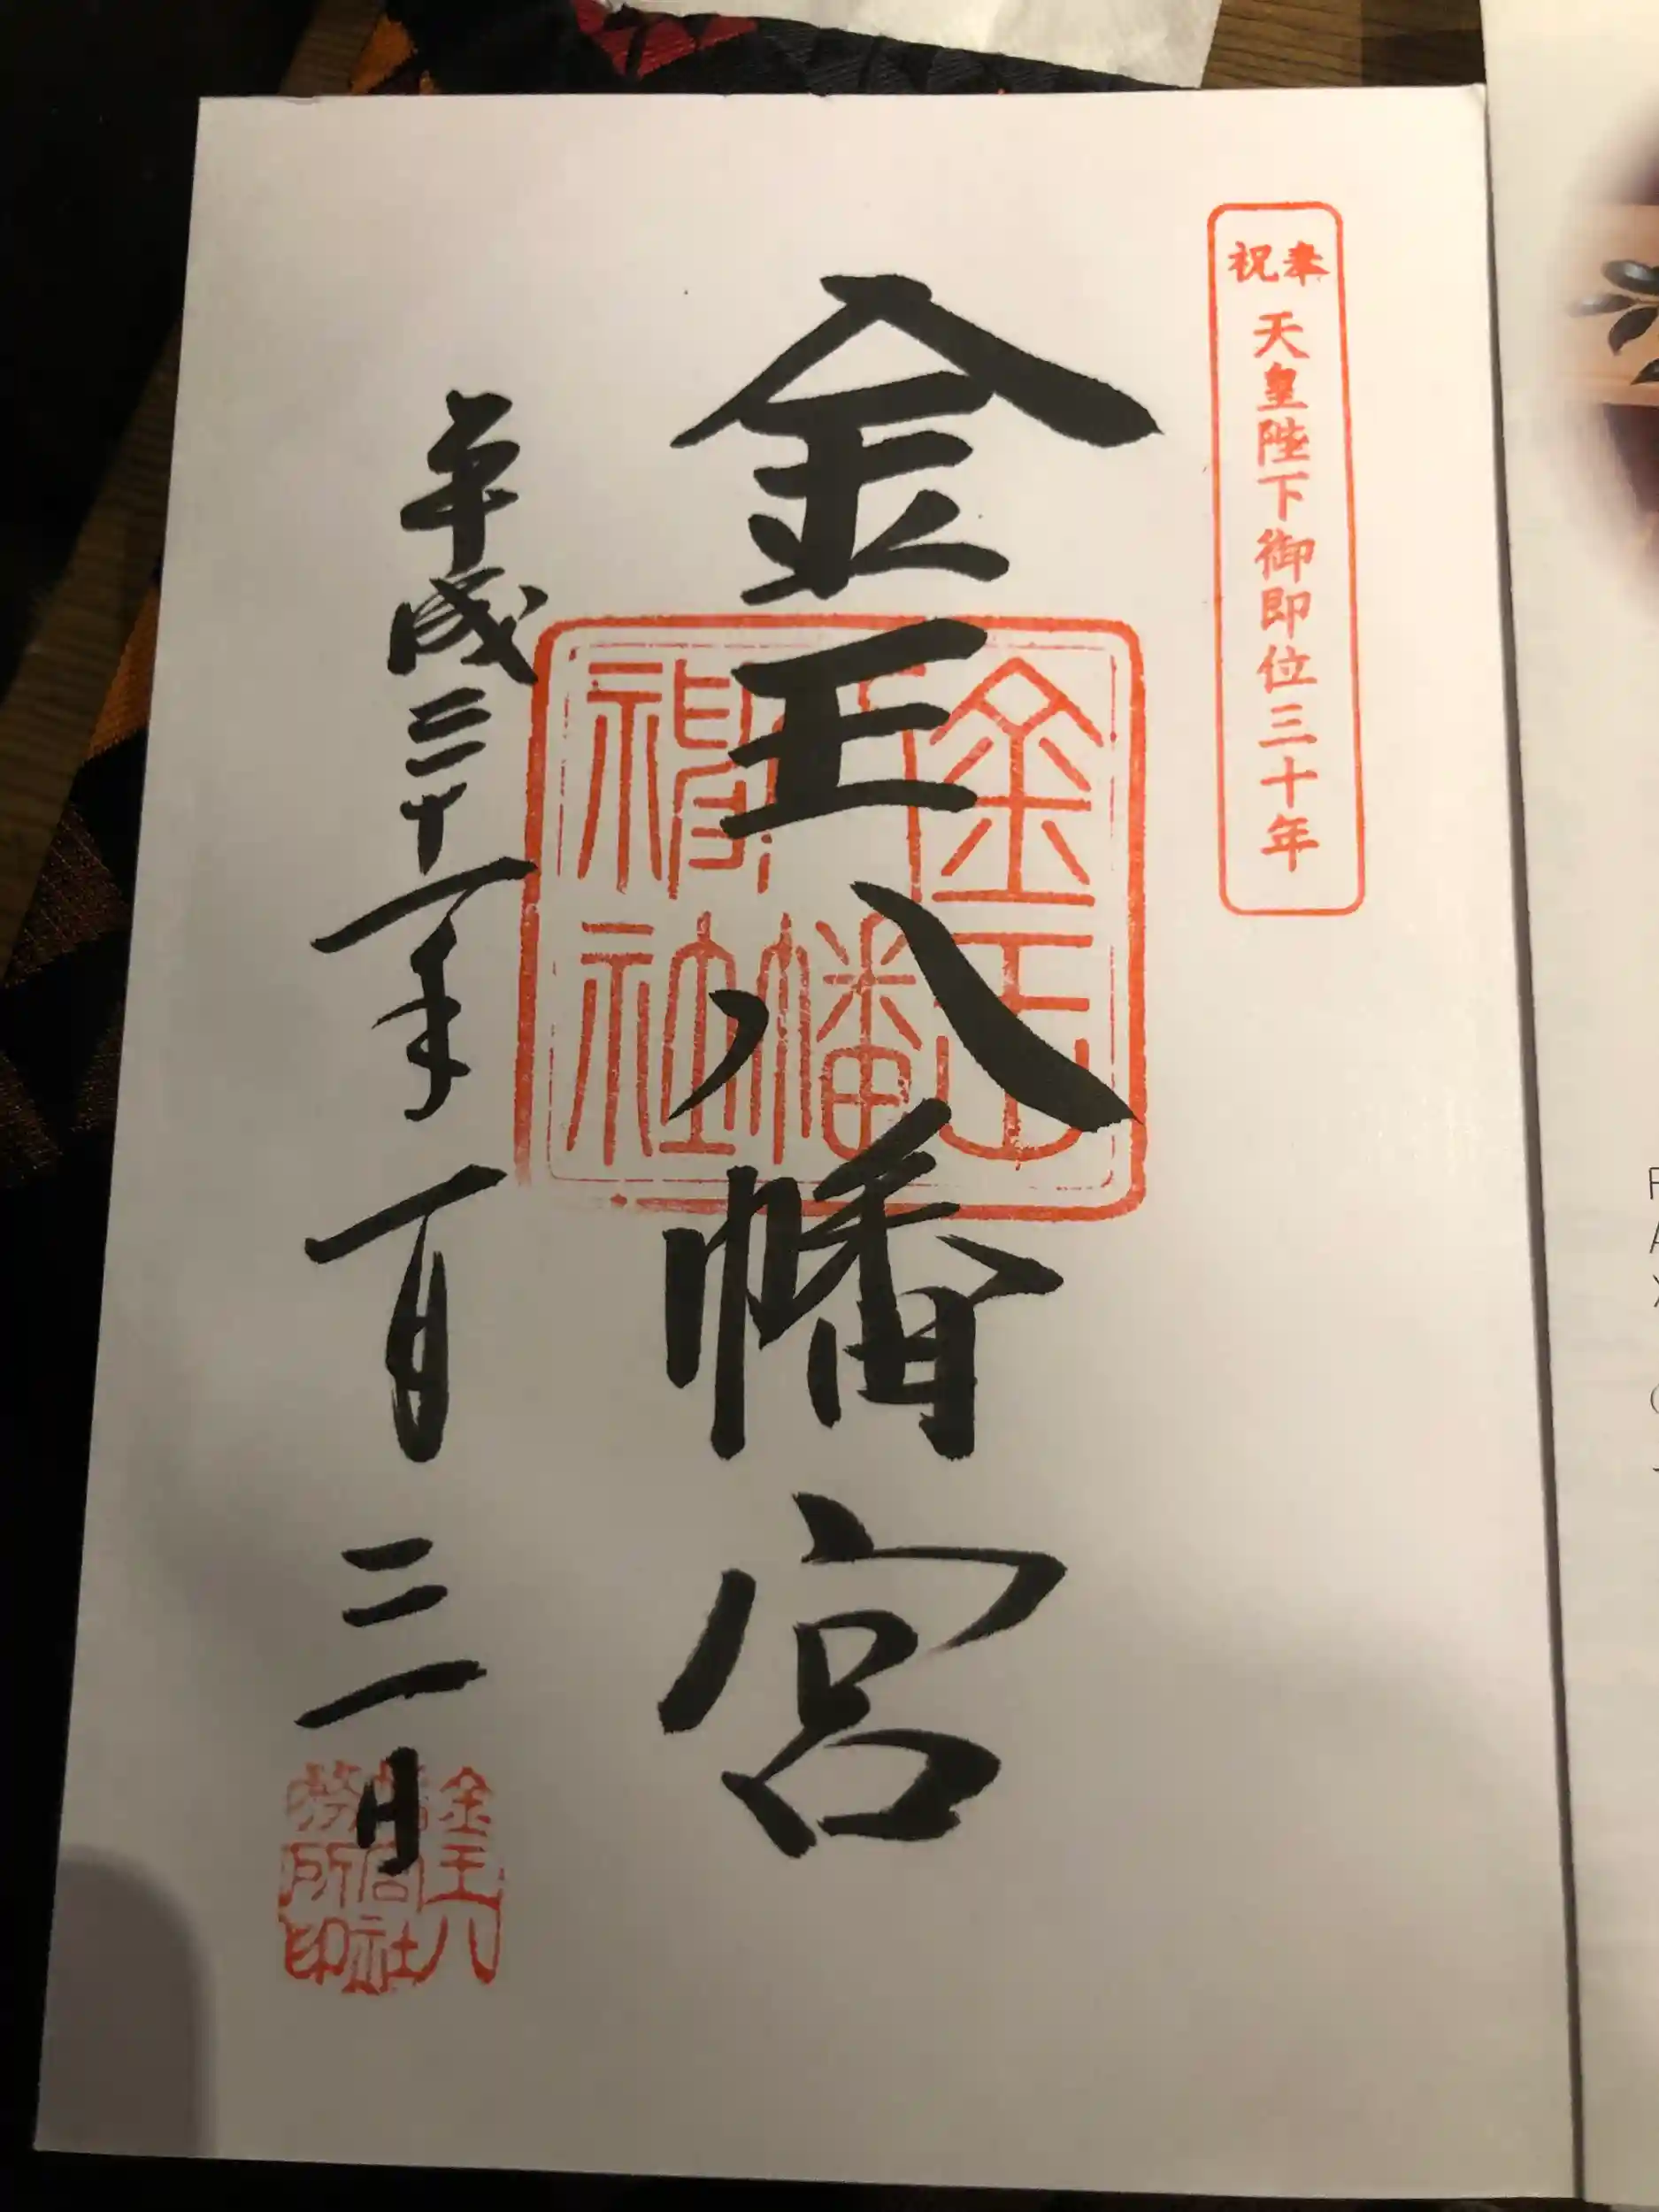 奉祝 天皇陛下御即位三十年
金王八幡宮
金王
八幡
神社
平成三十一年一月三日
金王八
幡宮社
務所印